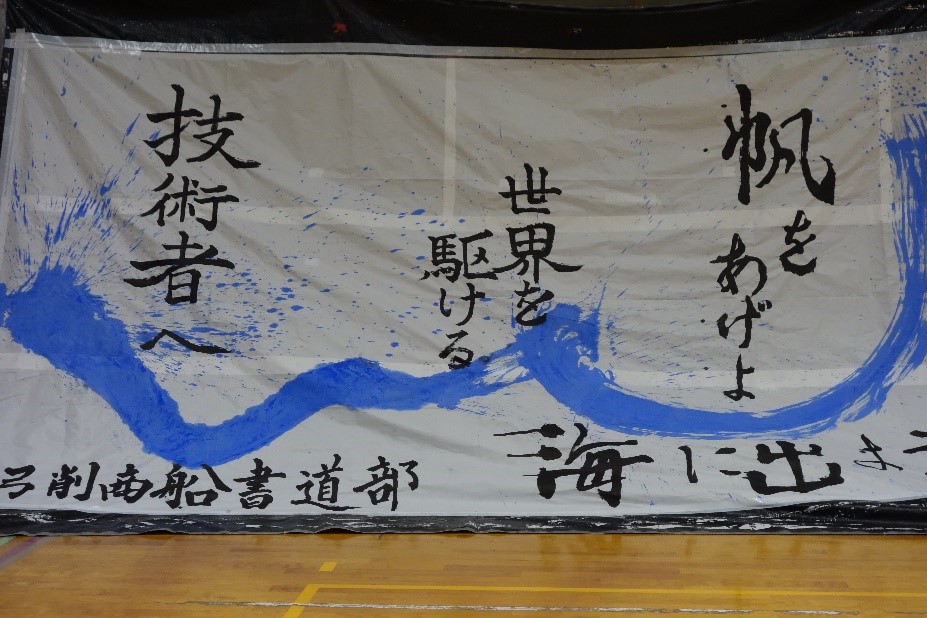 帆を
あげよ
世界を
駆ける
技術者へ
海に出よう
弓削商船書道部